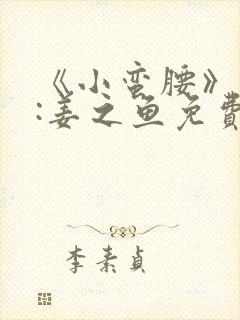 《小蛮腰》
:姜之鱼免費
李素貞